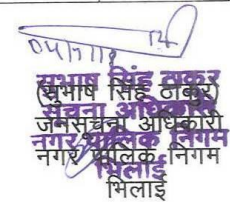 (सुभाष सिंह ठाकुर)
जनसूचना अधिकारी
नगर पालिक निगम
भिलाई
सुभाष सिंह ठाकुर
सूचना अधिकारी
नगर पालिक निगम
भिलाई